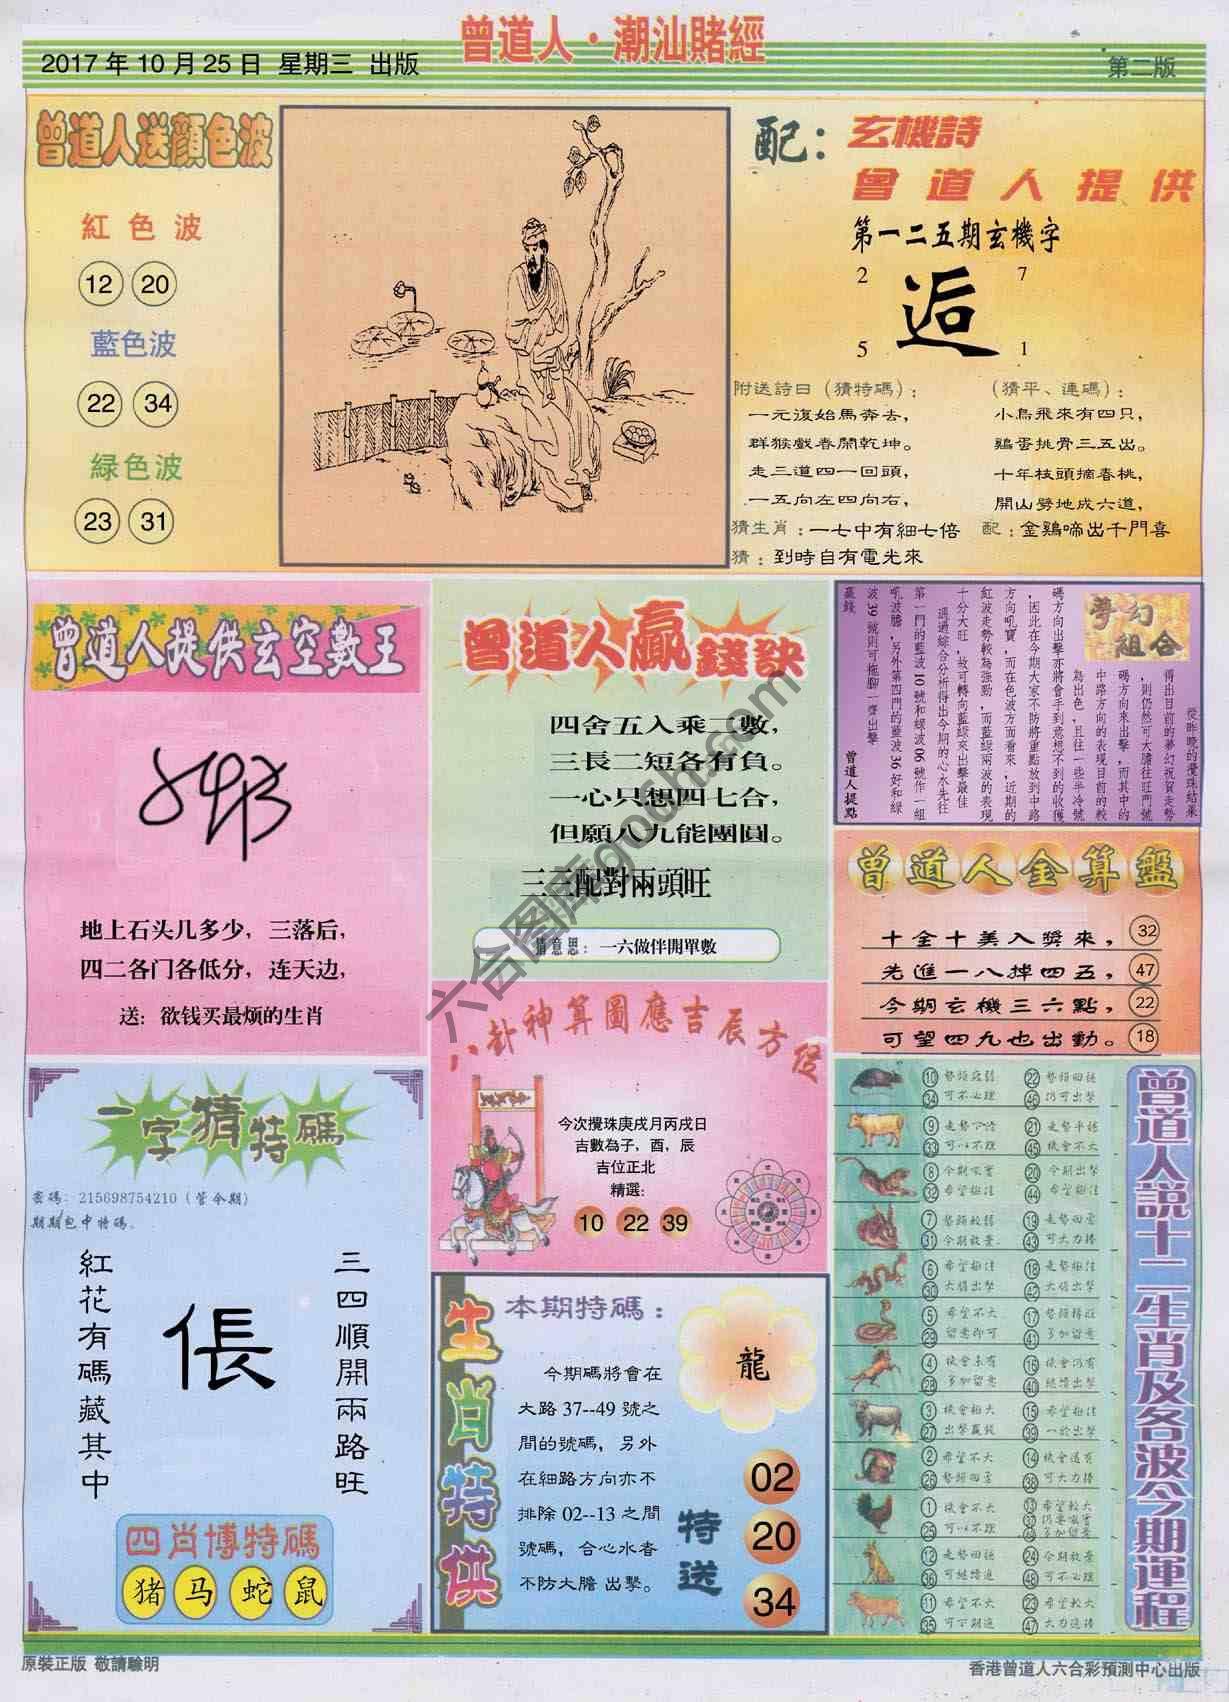 曾道人·潮汕賭經
2017 年 10 月 25 日 星期三 出版
第二版
曾道人送顏色波
紅色波
12 20
藍色波
22 34
緑色波
23 31
配：玄機詩
曾道人提供
第一二五期玄機字
2 7
逅
5 1
附送詩曰（猜特碼）：
一元復始馬奔去，
群猴戲春鬧乾坤。
走三道四一回頭，
一五向左四向右，
（猜平、連碼）：
小鳥飛來有四只，
鷄蛋挑骨三五出。
十年枝頭摘春桃，
開山劈地成六道，
猜生肖：一七中有細七倍
配：金鷄啼出千門喜
猜：到時自有電光來
曾道人提供玄空數王
地上石头几多少，三落后，
四二各门各低分，连天边，
送：欲钱买最烦的生肖
曾道人贏錢訣
四舍五入乘二數，
三長二短各有負。
一心只想四七合，
但願八九能團圓。
三三配對兩頭旺
猜意思：一六做伴開單數
夢幻組合
從昨晚的攪珠結果
得出目前的夢幻祝賀走勢
，則仍然可大膽往旺門號
碼方向來出擊，而其中的
中路方向的表現目前的較
為出色，且往一些半冷號
碼方向出擊亦將會手到意想不到的收獲
，因此在今期大家不防將重點放到中路
方向吼寶，而在色波方面看來，近期的
紅波走勢較為強勁，而藍綠兩波的表現
十分大旺，故可轉向藍綠來出擊最佳
通過綜合分析得出今期的心水先往
第一門的藍波 10 號和綠波 06 號作一組
吼波膽，另外第四門的藍波 36 好和綠
波 39 號則可拖腳一齊出擊
贏錢
曾道人提點
曾道人金算盤
十全十美入獎來， 32
先進一八掉四五， 47
今期玄機三六點， 22
可望四九也出動。 18
八卦神算圖應吉辰方位
今次攪珠庚戌月丙戌日
吉數為子，酉，辰
吉位正北
精選：
10 22 39
一字猜特碼
密碼：215698754210（管今期）
期期包中特碼。
三四順開兩路旺
倀
紅花有碼藏其中
四肖博特碼
猪 马 蛇 鼠
生肖特供
本期特碼：
龍
今期碼將會在
大路 37--49 號之
間的號碼，另外
在細路方向亦不
排除 02--13 之間
號碼，合心水者
不防大膽 出擊。
特送
02
20
34
曾道人說十二生肖及各波今期運程
10 34 22 46
9 33 21 45
8 32 20 44
7 31 19 43
6 30 18 42
5 29 17 41
4 28 16 40
3 27 15 39
2 26 14 38
1 25
12 36 24 48
11 35 23 47
原裝正版 敬請驗明
香港曾道人六合彩預測中心出版
六合图库gooh.com